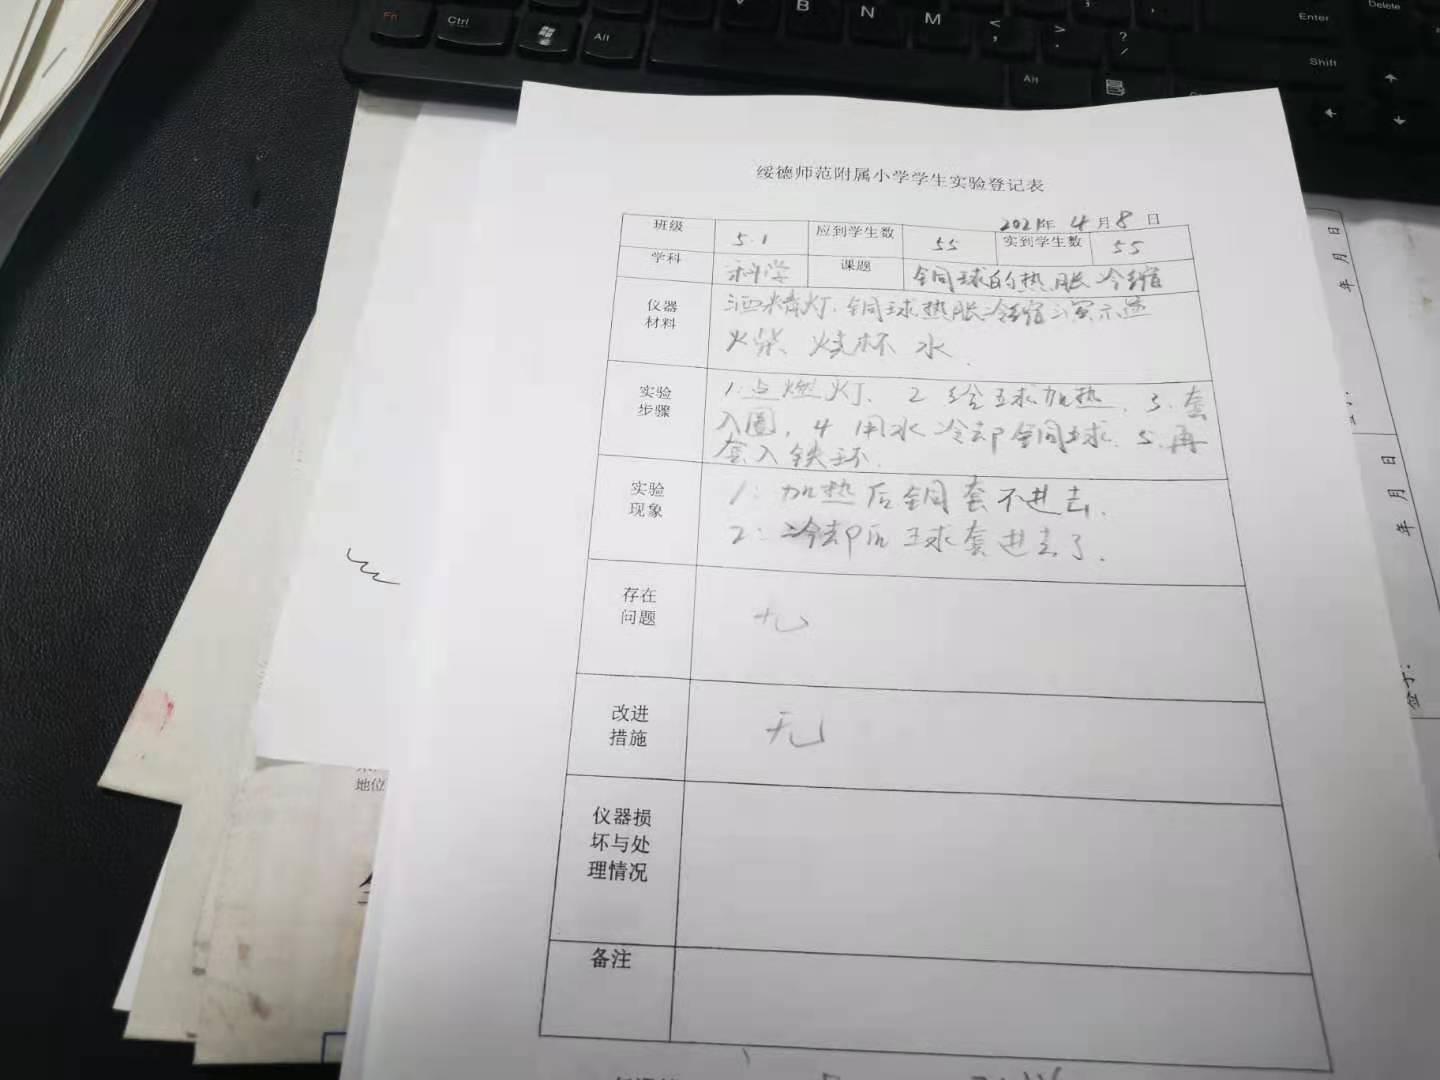 Fn Ctrl Alt V B N M < , > . ? / Enter Delete Shift
Alt
绥德师范附属小学学生实验登记表
2021年 4月8日
班级 5.1 应到学生数 55 实到学生数 55
学科 科学 课题 铜球的热胀冷缩
仪器材料 酒精灯、铜球热胀冷缩演示
火柴、烧杯 水
实验步骤 1.点燃灯、2 给球加热、3.套
入圈,4 用水冷却铜球.5.再
套入铁环.
实验现象 1:加热后铜套不进去.
2:冷却后球套进去了.
存在问题 无
改进措施 无
仪器损坏与处理情况
备注
年 月 日
年 月 日
地位